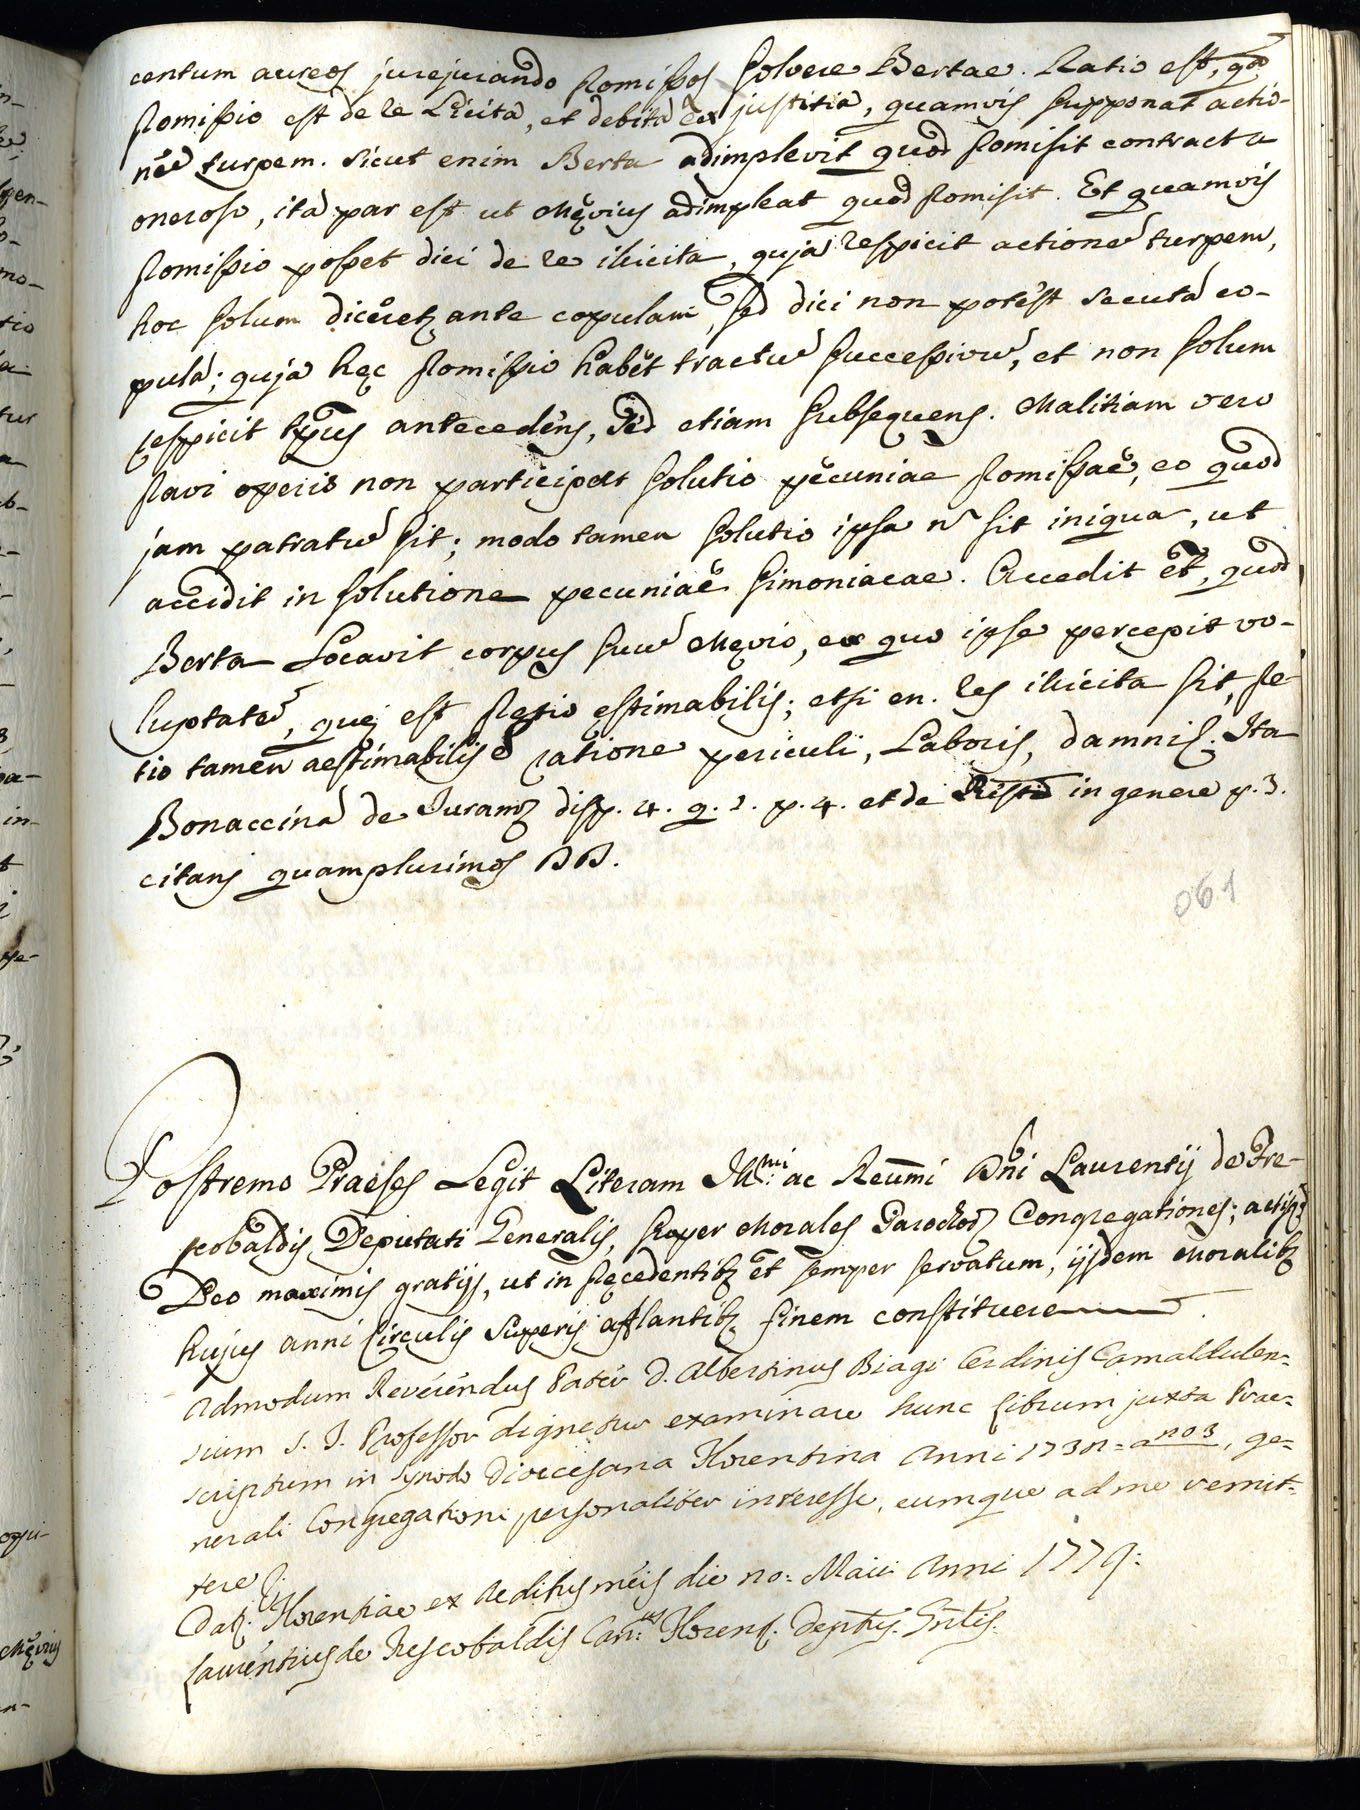 centum aureos jurejurando promissos solvere Bertae. Ratio est, qd
promissio est de re licita, et debita ex justitia, quamvis supponat actio-
nē turpem. Sicut enim Berta adimplevit quod promisit contractu
oneroso, ita par est ut Męvius adimpleat quod promisit. Et quamvis
promissio posset dici de re illicita, quja respicit actionē turpem,
hoc solum dicēretz ante copulam, sed dici non potest secuta co-
pula; quja hęc promissio habet tractū successivū, et non solum
respicit tp̄us antecedens, sed etiam subsequens. Malitiam vero
pravi operis non participat solutio pecuniae promissae, eo quod
jam patratū sit; modo tamen solutio ipsa n̄ sit iniqua, ut
accidit in solutione pecuniae simoniacae. Accedit et̄, quod
Berta locavit corpus suū Męvio, ex quo ipse percepit vo-
luptatē, quę est pretio ęstimabilis; etsi en. res illicita sit, pre
tio tamen aestimabilis ē ratione periculi, laboris, damnis. Ita
Bonaccina de Juramz disp. 4. q. 1. p. 4. et de in genere p. 3.
citans quamplurimos DD.
061
Postremo Praeses legit Literam Ill:mi ac Reūmi Dn̄i Laurentij de Fre-
scobaldis Deputati Generalis, super Morales Parochoz Congregationes; actisqz
Deo maximis gratijs, ut in pręcedentibz et semper servatum, ijsdem Moralibz
hujus anni Circulis Superis afflantibz finem constituere
Admodum Reverendus Pater D. Albertinus Biagi Ordinis Camaldulen=
sium S. T. Professor dignetur examinare hunc librum juxta Prae=
scriptum in Synodo Dioecesana Florentina Anni 1732= a n.o 3, ge=
nerali Congregationi personaliter interesse, eumque ad me remit=
tere
Datz: Florentiae ex Aedibus meis die 20: Maii Anni 1779:
Laurentius de Frescobaldis Can:us Florenz. Deptūs. Gn̄lis.